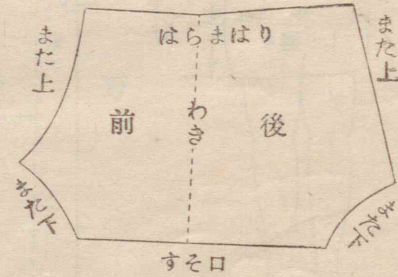 はらまはり
また上
また上
前
わき
後
また下
また下
すそ口